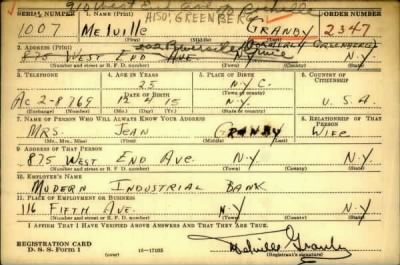 910 West End Ave
SERIAL NUMBER 1. NAME (Print) ALSO, GREENBERG ORDER NUMBER
1007 Melville GRANBY 2347
(First) (Middle) (Last)
2. ADDRESS (Print) 202 Riverside Drive (FORMERLY GREENBERG)
875 WEST END AVE. N.Y.
(Number and street or R. F. D. number) (Town) (County) (State)
3. TELEPHONE 4. AGE IN YEARS 5. PLACE OF BIRTH 6. COUNTRY OF CITIZENSHIP
25 N.Y.C.
DATE OF BIRTH (Town or county)
AC 2-8769 12 4 15 N.Y. U.S.A.
(Exchange) (Number) (Mo.) (Day) (Yr.) (State or country)
7. NAME OF PERSON WHO WILL ALWAYS KNOW YOUR ADDRESS 8. RELATIONSHIP OF THAT PERSON
MRS. JEAN GRANBY WIFE
(Mr., Mrs., Miss) (First) (Middle) (Last)
9. ADDRESS OF THAT PERSON
875 WEST END AVE. N.Y. N.Y.
(Number and street or R. F. D. number) (Town) (County) (State)
10. EMPLOYER'S NAME
MODERN INDUSTRIAL BANK
11. PLACE OF EMPLOYMENT OR BUSINESS
116 FIFTH AVE. N.Y. N.Y.
(Number and street or R. F. D. number) (Town) (County) (State)
I AFFIRM THAT I HAVE VERIFIED ABOVE ANSWERS AND THAT THEY ARE TRUE.
REGISTRATION CARD
D. S. S. Form 1 (over) 16-17105 Melville Granby
(Registrant's signature)